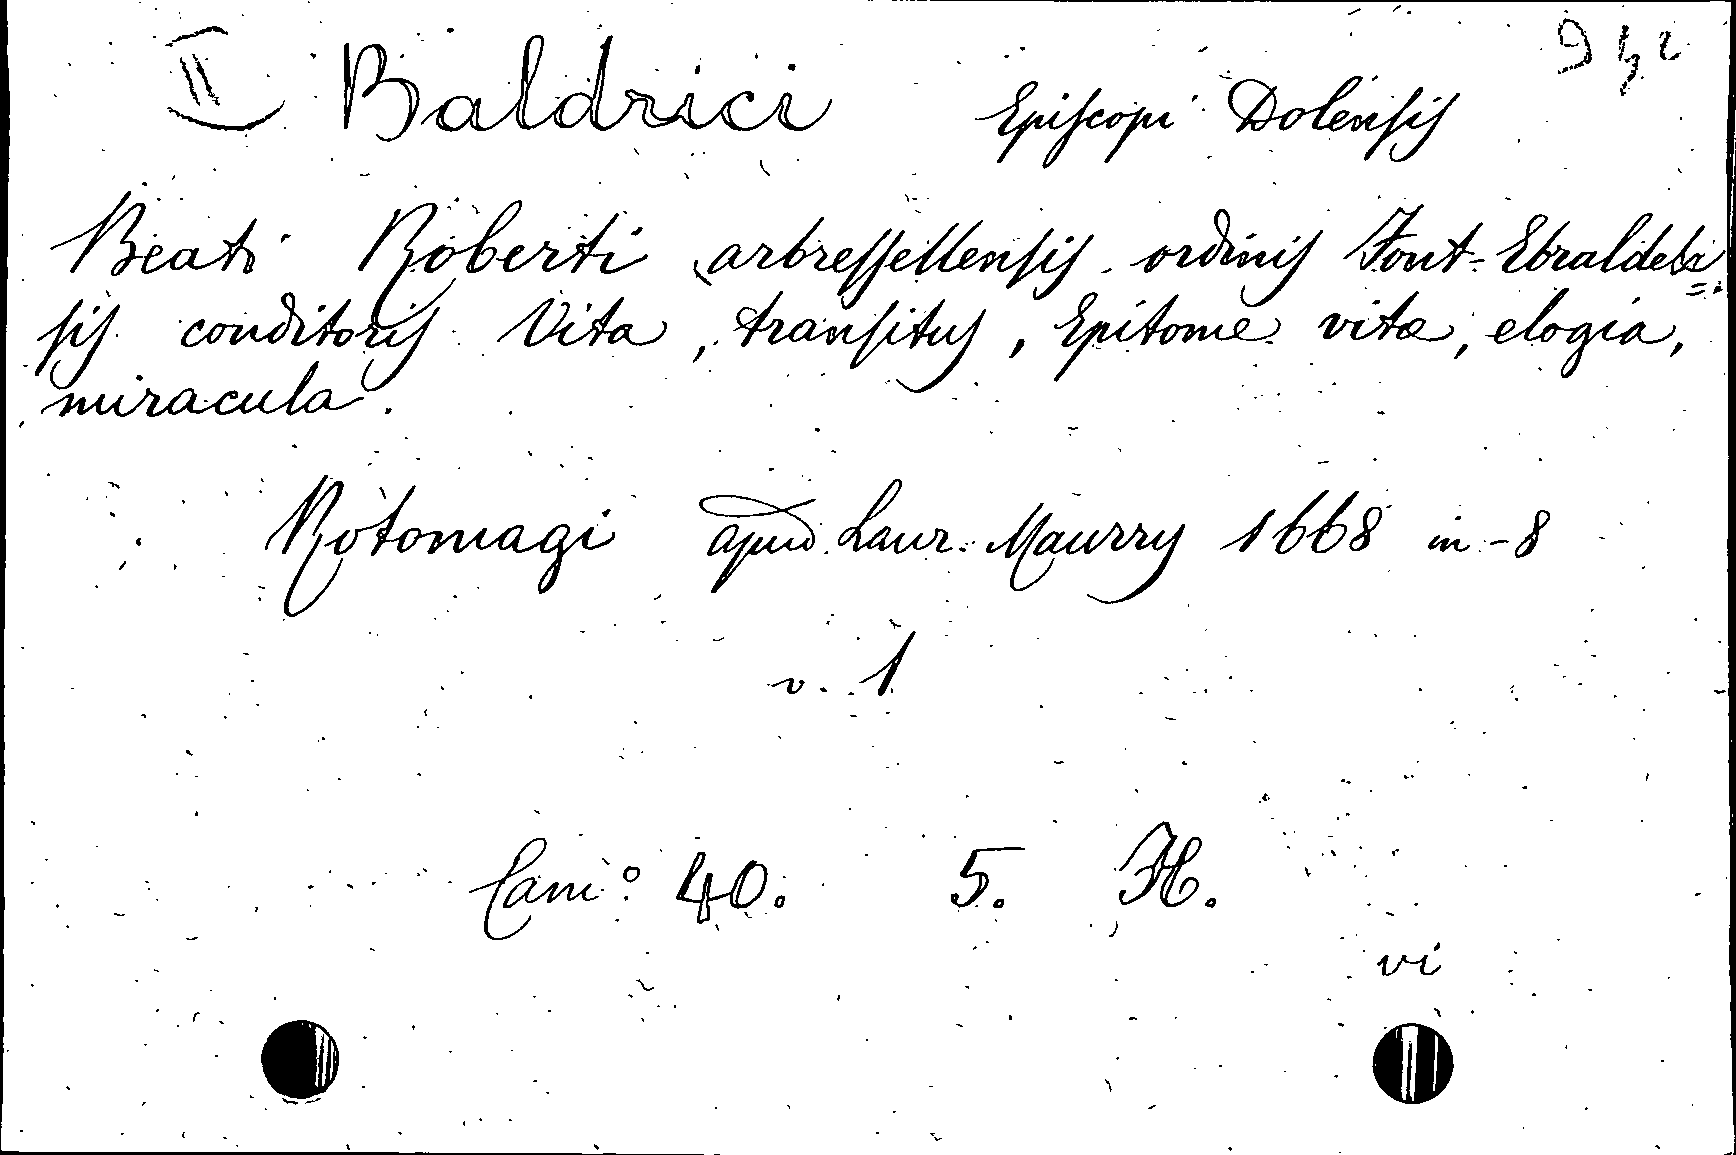 II Baldrici Episcopi Dolensis
Beati Roberti arbressellensis ordinis Font-Ebralde
sis conditoris Vita, transitus, Epitome vitæ, elogia,
miracula.
Rotomagi apud Laur. Maurry 1668 in-8
v. 1
Cam° 40. 5. H.
vi